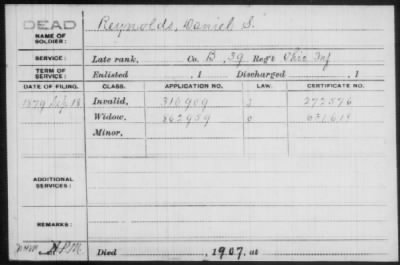 DEAD
NAME OF SOLDIER: Reynolds, Daniel S.
SERVICE: Late rank, Co. B, 39 Reg't Ohio Inf
TERM OF SERVICE: Enlisted , 1 Discharged , 1
DATE OF FILING. CLASS. APPLICATION NO. LAW. CERTIFICATE NO.
1879 Sep 18 Invalid, 310909 272576
Widow, 862959
Minor,
ADDITIONAL SERVICES:
REMARKS:
Died , 1907, at